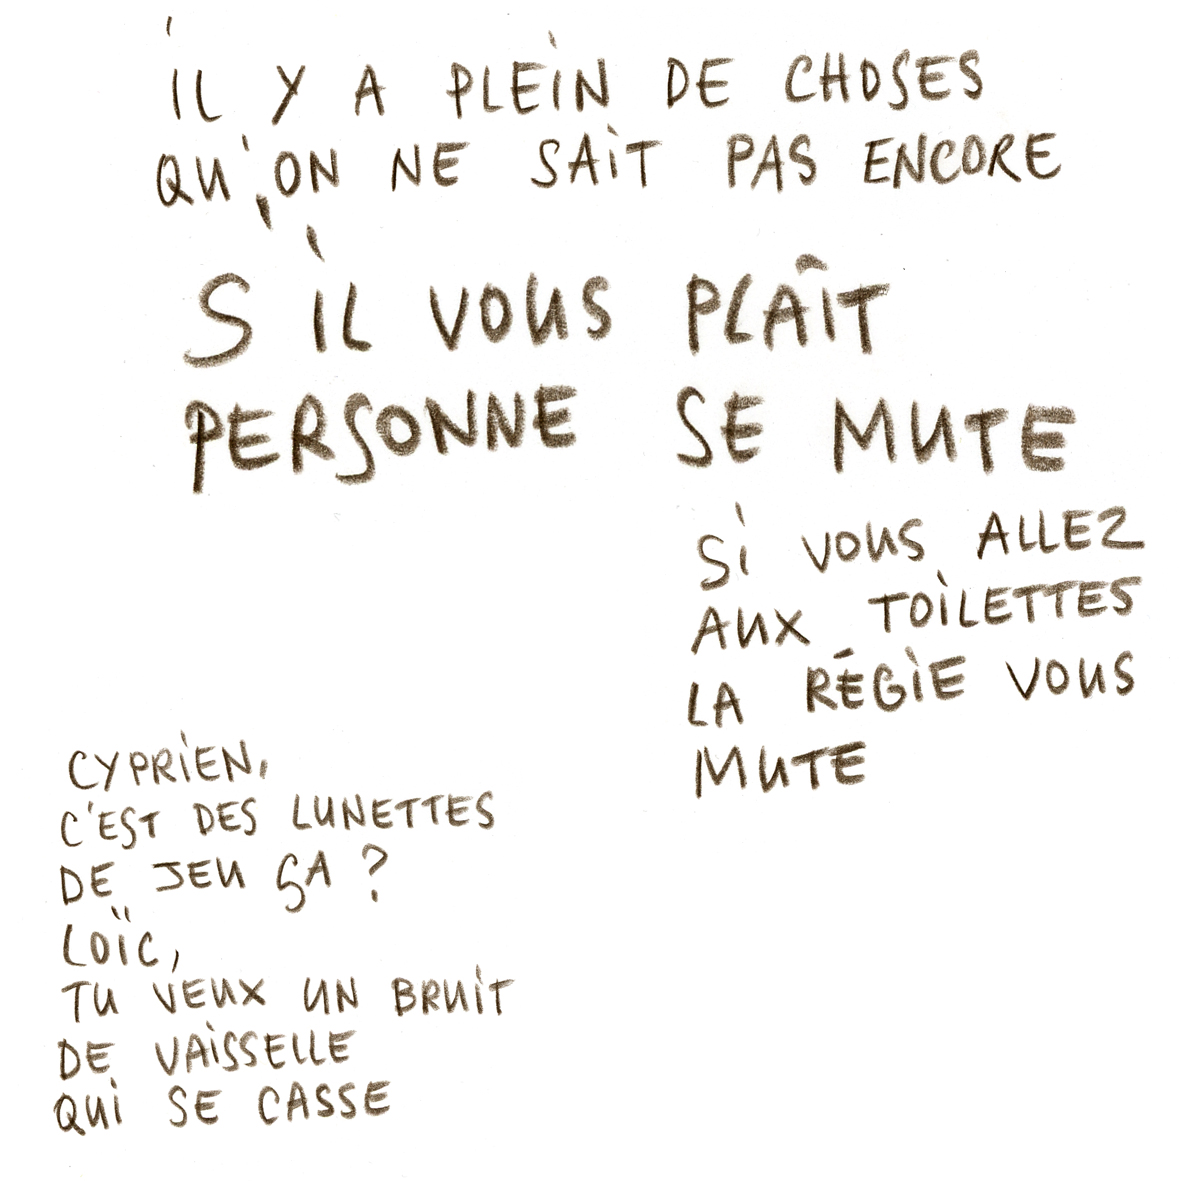 IL Y A PLEIN DE CHOSES
QU'ON NE SAIT PAS ENCORE
S'IL VOUS PLAÎT
PERSONNE SE MUTE
SI VOUS ALLEZ
AUX TOILETTES
LA RÉGIE VOUS
MUTE
CYPRIEN,
C'EST DES LUNETTES
DE JEU ÇA ?
LOÏC,
TU VEUX UN BRUIT
DE VAISSELLE
QUI SE CASSE